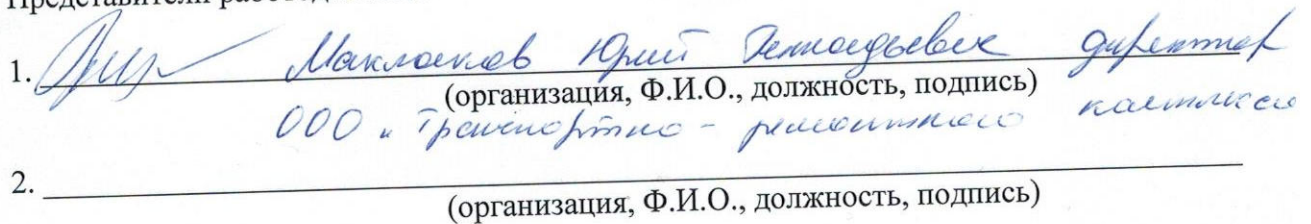 Представители работод
1. Маклоков Юрий Геннадьевич директор
(организация, Ф.И.О., должность, подпись)
ООО "Транспортно-ремонтного комплекса
2.
(организация, Ф.И.О., должность, подпись)